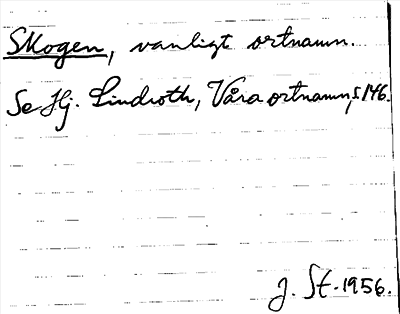 Skogen, vanligt ortnamn.
Se Hj. Lindroth, Våra ortnamn, s. 146.
J. St. 1956.